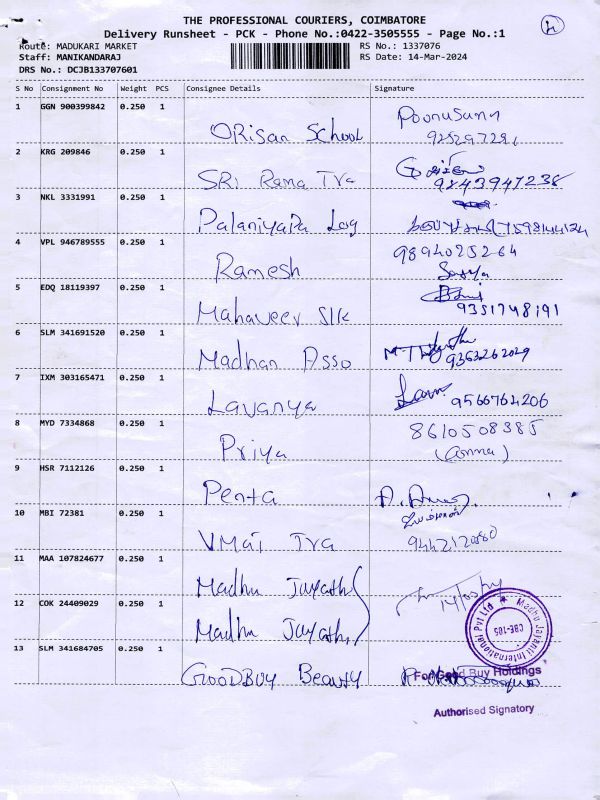 THE PROFESSIONAL COURIERS, COIMBATORE
Delivery Runsheet - PCK - Phone No.:0422-3505555 - Page No.:1
Route: MADUKARI MARKET
RS No.: 1337076
Staff: MANIKANDARAJ
RS Date: 14-Mar-2024
DRS No.: DCJB133707601
S No Consignment No Weight PCS Consignee Details Signature
1 GGN 900399842 0.250 1
ORisan School
2 KRG 209846 0.250 1
SRi Rama Tra 9843947238
3 NKL 3331991 0.250 1
Palaniyapa Log 7598144124
4 VPL 946789555 0.250 1
Ramesh 9894025264
Sarya
5 EDQ 18119397 0.250 1
Mahaveer Slk 9351748191
6 SLM 341691520 0.250 1
Madhan Asso 9363262029
7 IXM 303165471 0.250 1
Lavanya 9566764206
8 MYD 7334868 0.250 1
Priya 8610508385
(amma)
9 HSR 7112126 0.250 1
Penta
10 MBI 72381 0.250 1
VMai Tra
11 MAA 107824677 0.250 1
Madhu Jayath
12 COK 24409029 0.250 1
Madhu Jayath
Madhu Jayanti International Pvt Ltd
CBE-105
13 SLM 341684705 0.250 1
GOODBUY Beauty
For Good Buy Holdings
Authorised Signatory